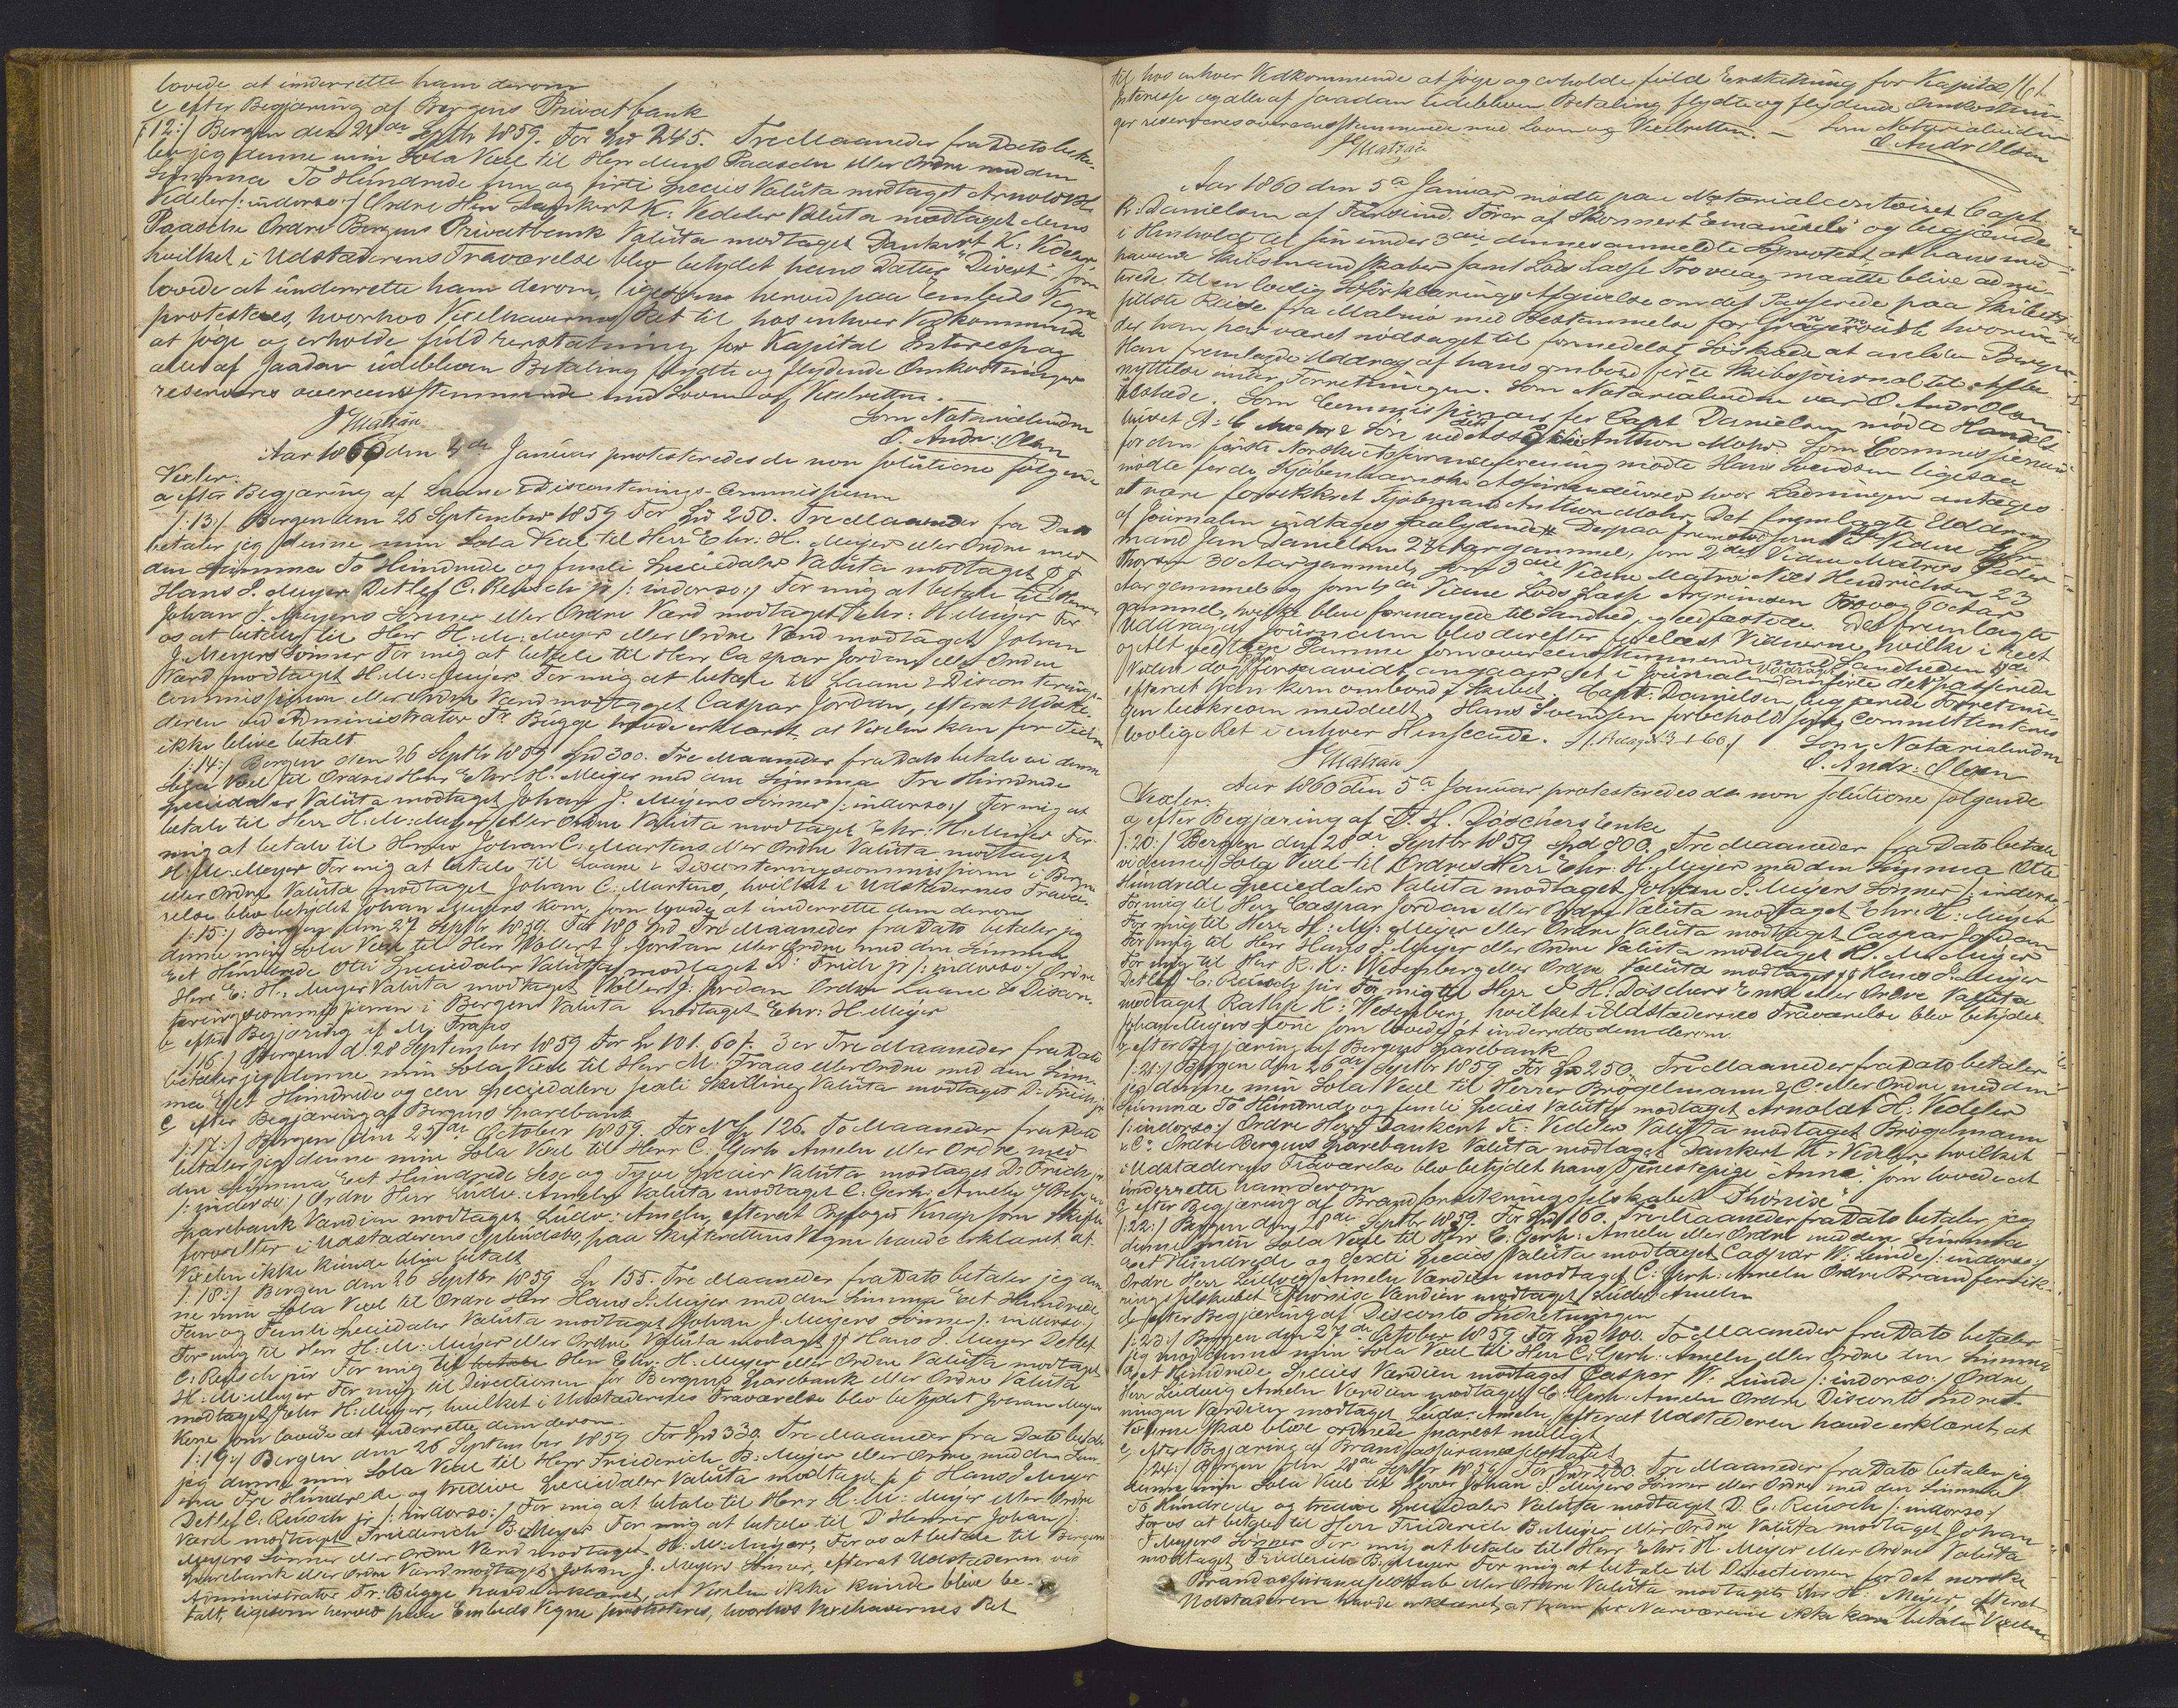 lovede at underrette ham derom
c, efter Begjæring af Bergens Privatbank
/:12:/ Bergen den 24de Septbr 1859. For Spd 245. Tre Maaneder fra Dato beta-
ler jeg denne min Sola Vexel til Herr Mens Paasche eller Ordre med den
Summa To Hundrede fem og firti Species Valuta modtaget Arnoldt H.
Vedeler /: indorso:/ Ordre Herr Dankert K: Vedeler Valuta modtaget Mens
Paasche Ordre Bergens Privatbank Valuta modtaget Dankert K: Vedeler,
hvilket i Udstæderens Fraværelse blev betydet hans Datter "Divert" som
lovede at underrette ham derom, ligesom herved paa Embeds Vegne
protesteres, hvorhos Vexelhavernes Ret til hos enhver Vedkommende
at søge og erholde fuld Erstatning for Kapital Interesse og
alle af saadan udebleven Betaling flydte og flydende Omkostninger
reserveres overeensstemmende med Loven og Vexelretten.
J Matzau Som Notarialvidne
O. Andr: Olsen
Aar 1860 den 4de Januar protesteredes de non solutione følgende
Vexler:
a efter Begjæring af Laane & Disconterings-Commissionen
/:13:/ Bergen den 26 September 1859 For Spd 250. Tre Maaneder fra Dato
betaler jeg denne min Sola Vexel til Herr Ehr: H. Meyer eller Ordre med
den Summa To Hundrede og femti Speciedaler Valuta modtaget p p
Hans J. Meyer Detlef C. Reusch jr /: indorso:/ For mig at betale til Herrer
Johan J. Meyers Sønner eller Ordre Værd modtaget Ehr: H. Meyer For
os at betale til Herr H: M: Meyer eller Ordre Værd modtaget Johan
J. Meyers Sønner For mig at betale til Herr Caspar Jordan eller Ordre
Værd modtaget H. M: Meyer. For mig at betale til Laane & Disconterings-
commissionen eller Ordre Værd modtaget Caspar Jordan, efterat Udstæ-
deren ved Administrator Fr Bugge havde erklæret at Vexelen kan for Tiden
ikke blive betalt
/:14:/ Bergen den 26 Septbr 1859 Spd 300. Tre Maaneder fra Dato betale vi denne
Sola Vexel til Ordres Herr Ehr. H. Meyer med den Summa Tre Hundrede
Speciedaler Valuta modtaget Johan J. Meyers Sønner /: indorso:/ For mig at
betale til Herr H: M: Meyer eller Ordre Valuta modtaget Ehr: H: Meyer For
mig at betale til Herr Johan C: Martens eller Ordre Valuta modtaget
H: M: Meyer For mig at betale til Laane & Disconteringscommissionen i Bergen
eller Ordre Valuta modtaget Johan C: Martens, hvilket i Udstædernes Fravæ-
relse blev betydet Johan Meyers Kone, som lovede at underrette dem derom
/:15:/ Bergen den 27 Septbr 1859. For 180 Spd Tre Maaneder fra Dato betaler jeg
denne min Sola Vexel til Herr Wollert J. Jordan eller Ordre med den Summa
Eet Hundrede Otti Speciedaler Valuta modtaget D: Friele jr /: indorso:/ Ordre
Herr E: H: Meyer Valuta modtaget Wollert J: Jordan Ordre Laane & Discon-
teringscommissionen i Bergen Valuta modtaget Ehr: H. Meyer
b efter Begjæring af M. Traas
/:16:/ Bergen d: 28 September 1859 For Sp 101. 60 s. 3 er Tre Maaneder fra Dato
betaler jeg denne min Sola Vexel til Herr M: Fraas eller Ordre med den Sum-
ma Eet Hundrede og een Speciedalere sexti Skilling Valuta modtaget D: Friele jr
c efter Begjæring af Bergens Sparebank
/:17:/ Bergen den 25de October 1859. For Sp 126. To Maaneder fra Dato
betaler jeg denne min Sola Vexel til Herr C: Gerh Ameln eller Ordre med
den Summa Eet Hundrede Sex og Tyve Species Valuta modtaget D: Friele jr
/: indorso:/ Ordre Herr Ludv: Ameln Valuta modtaget C: Gerh: Ameln
Sparebank Værdien modtaget Ludv: Ameln, efterat Byfoged Knap som Skifte
forvalter i Udstæderens Opbudsbo, paa Skifterettens Vegne havde erklæret at
Vexelen ikke kunde blive betalt
/:18:/ Bergen den 26 Septbr 1859 Sp 155. Tre Maaneder fra Dato betaler jeg den-
ne min Sola Vexel til Ordre Herr Hans J. Meyer med den Summa Eet Hundrede
Fem og Femti Speciedaler Valuta modtaget Johan J. Meyers Sønner /: indorso:/
For mig til Herr H: M: Meyer eller Ordre Valuta modtaget pp Hans J. Meyer Detlef
C: Reusch jur For mig til Herr Ehr: H: Meyer eller Ordre Valuta modtaget
H: M: Meyer For mig til Directionen for Bergens Sparebank eller Ordre Valuta
modtaget Ehr H: Meyer, hvilket i Udstædernes Fraværelse blev betydet Johan Meyers
Kone som lovede at underrette dem derom
/:19:/ Bergen den 26 September 1859 For Spd 330. Tre Maaneder fra Dato betaler
jeg denne min Sola Vexel til Herr Friederich B: Meyer eller Ordre med den Sum-
ma Tre Hundrede og tredive Speciedaler Valuta modtaget p p Hans J Meyer
Detlef C: Reusch jr /: indorso:/ For mig at betale til Herr H: M: Meyer eller Ordre
Værd modtaget Friederich B: Meyer For mig at betale til D'Herrer Johan J:
Meyers Sønner eller Ordre Værd modtaget H: M: Meyer, For os at betale til Bergens
Sparebank eller Ordre Værd modtaget Johan J. Meyers Sønner, efterat Udstæderen ved
Administrator Fr: Bugge havde erklæret, at Vexelen ikke kunde blive be-
talt, ligesom herved paa Embeds Vegne protesteres, hvorhos Vexelhavernes Ret
161
til hos enhver Vedkommende at søge og erholde fuld Erstatning for Kapital
Interesse og alle af saadan udebleven Betaling flydte og flydende Omkostnin-
ger reserveres overeensstemmende med Loven og Vexelretten. – Som Notarialvidne
J Matzau O Andr Olsen
Aar 1860 den 5te Januar mødte paa Notarialcontoiret Capt
R: Danielsen af Farsund. Fører af Skonnert "Emanuel" og begjærede
i Henhold til sin under 3die dennes anmeldte Søprotest, at hans med-
havende Skibsmandskaber samt Lods Lasse Trovaag maatte blive admit-
terede til en lovlig Søforklarings Afgivelse om det Passerede paa Skibets
sidste Reise fra Malmø med Bestemmelse for hvorun-
der han har været nødsaget til formedelst Søskade at anløbe Bergen.
Han fremlagde Uddrag af hans ombord førte Skibsjournal til Afbe-
nyttelse under Forretningen. Som Notarialvidne var O Andr Olsen
tilstede. Som Commissionair for Capt Danielsen mødte Handels-
huset A: C Mohr & Søn ved dets Associé Anthon Mohr. Som Commissionair
for den første Norske Assuranceforening mødte Hans Svendsen ligesaa
mødte for de Kjøbenhavnske Assurandeurer hvor Ladningen antages
at være forsikkret Kjøbmand Anthon Mohr. Det fremlagte Uddrag
af Journalen indtages saalydende # Derpaa fremstod som 1ste Vidne Styr-
mand Jan Danielsen 27 Aar gammel, som 2det Vidne Matros Peder
Thorsen 30 Aar gammel, som 3die Vidne Matros Nils Hendrichsen 23
Aar gammel og som 4de Vidne Lods Lasse Trovaag 60 Aar
gammel, hvilke blev formanede til Sandhed og eedfæstede. Det fremlagte
Uddrag af Journalen blev derefter oplæst Vidnerne, hvilke i Eet
og Alt vedtoge Samme som overeensstemmende med Sandheden 4de
Vidne dog kun forsaavidt angaaer det i Journalen Uddraget anførte det passerede
efterat han kom ombord i Skibet. Capt: Danielsen begjærede Forretnin-
gen beskreven meddeelt. Hans Svendsen forbeholdt sine Committenters
lovlige Ret i enhver Henseende. Som Notarialvidne
J Matzau O. Andr: Olsen
Aar 1860 den 5te Januar protesteredes de non solutione følgende
Vexler:
a, efter Begjæring af J. H. Döschers Enke
/:20:/ Bergen den 28de Septbr 1859 Spd 800. Tre Maaneder fra Dato betale
vi denne Sola Vexel til Ordres Herr Ehr. H. Meyer med den Summa Otte
Hundrede Speciedaler Valuta modtaget Johan J. Meyers Sønner /: indorso:/
For mig til Herr Caspar Jordan eller Ordre Valuta modtaget Ehr: H: Meyer
For mig til Herr H: M: Meyer eller Ordre Valuta modtaget Caspar Jordan
For mig til Herr Hans J. Meyer eller Ordre Valuta modtaget H. M. Meyer
For mig til Herr R. K: Wesenberg eller Ordre Valuta modtaget pp Hans J. Meyer
Detlef C: Reusch jur For mig til Herr J H: Döschers Enke eller Ordre Valuta
modtaget Rathje K: Wesenberg hvilket i Udstædernes Fraværelse blev betydet
Johan Meyers Kone som lovede at underrette dem derom
b, efter Begjæring af Bergens Sparebank
/:21:/ Bergen den 26de Septbr 1859 For Sp 250. Tre Maaneder fra Dato betaler
jeg denne min Sola Vexel til Herrer Brögelmann & C: eller Ordre med den
Summa To Hundrede og femti Species Valuta modtaget Arnoldt H: Vedeler
/: indorso:/ Ordre Herr Dankert K: Vedeler Valuta modtaget Brögelmann
& Co Ordre Bergens Sparebank Valuta modtaget Dankert K: Vedeler hvilket
i Udstæderens Fraværelse blev betydet hans Tjenestepige "Anna" som lovede at
underrette ham derom
c efter Begjæring af Brandforsikringsselskabet "Phönix"
/:22:/ Bergen den 28de Septbr 1859. For Spd 160. Tre Maaneder fra Dato betaler jeg
denne min Sola Vexel til Herr C: Gerh: Ameln eller Ordre med den Summa
Eet Hundrede og Sexti Species Valuta modtaget Caspar W: Linde /: indorso:/
Ordre Herr Ludvig Ameln Værdien modtaget C: Gerh: Ameln Ordre Brandforsik-
ringsselskabet Phönix Værdien modtaget Ludv: Ameln
d, efter Begjæring af Disconto Indretningen
/:23:/ Bergen den 27de October 1859 For Spd 100. To Maaneder fra Dato betaler
jeg mod denne min Sola Vexel til Herr C: Gerh: Ameln eller Ordre den Summa
Eet Hundrede Species Værdien modtaget Caspar W: Linde /: indorso:/ Ordre
Herr Ludwig Ameln Værdien modtaget C: Gerh: Ameln Ordre Disconto Indret-
ningen Værdien modtaget Ludv: Ameln, efterat Udstæderen havde erklæret, at
Vexlerne skal blive ordnede snarest muligt
e, efter Begjæring af Brandassuranceselskabet
/:24:/ Bergen den 28de Septbr 1859 For Spd 230. Tre Maaneder fra Dato betaler jeg
denne min Sola Vexel til Herrer Johan J. Meyers Sønner eller Ordre med den Summa
To Hundrede og tredive Speciedaler Valuta modtaget D. C: Reusch /: indorso:/
For os at betale til Herr Friederich B: Meyer eller Ordre Valuta modtaget Johan
J Meyers Sønner For mig at betale til Herr Ehr: H Meyer eller Ordre Valuta
modtaget Friederich B: Meyer For mig at betale til Directionen for det norske
Brandassuranceselskab eller Ordre Valuta modtaget Ehr H: Meyer, efterat
Udstæderen havde erklæret, at han for Nærværende ikke kan betale Vexelen